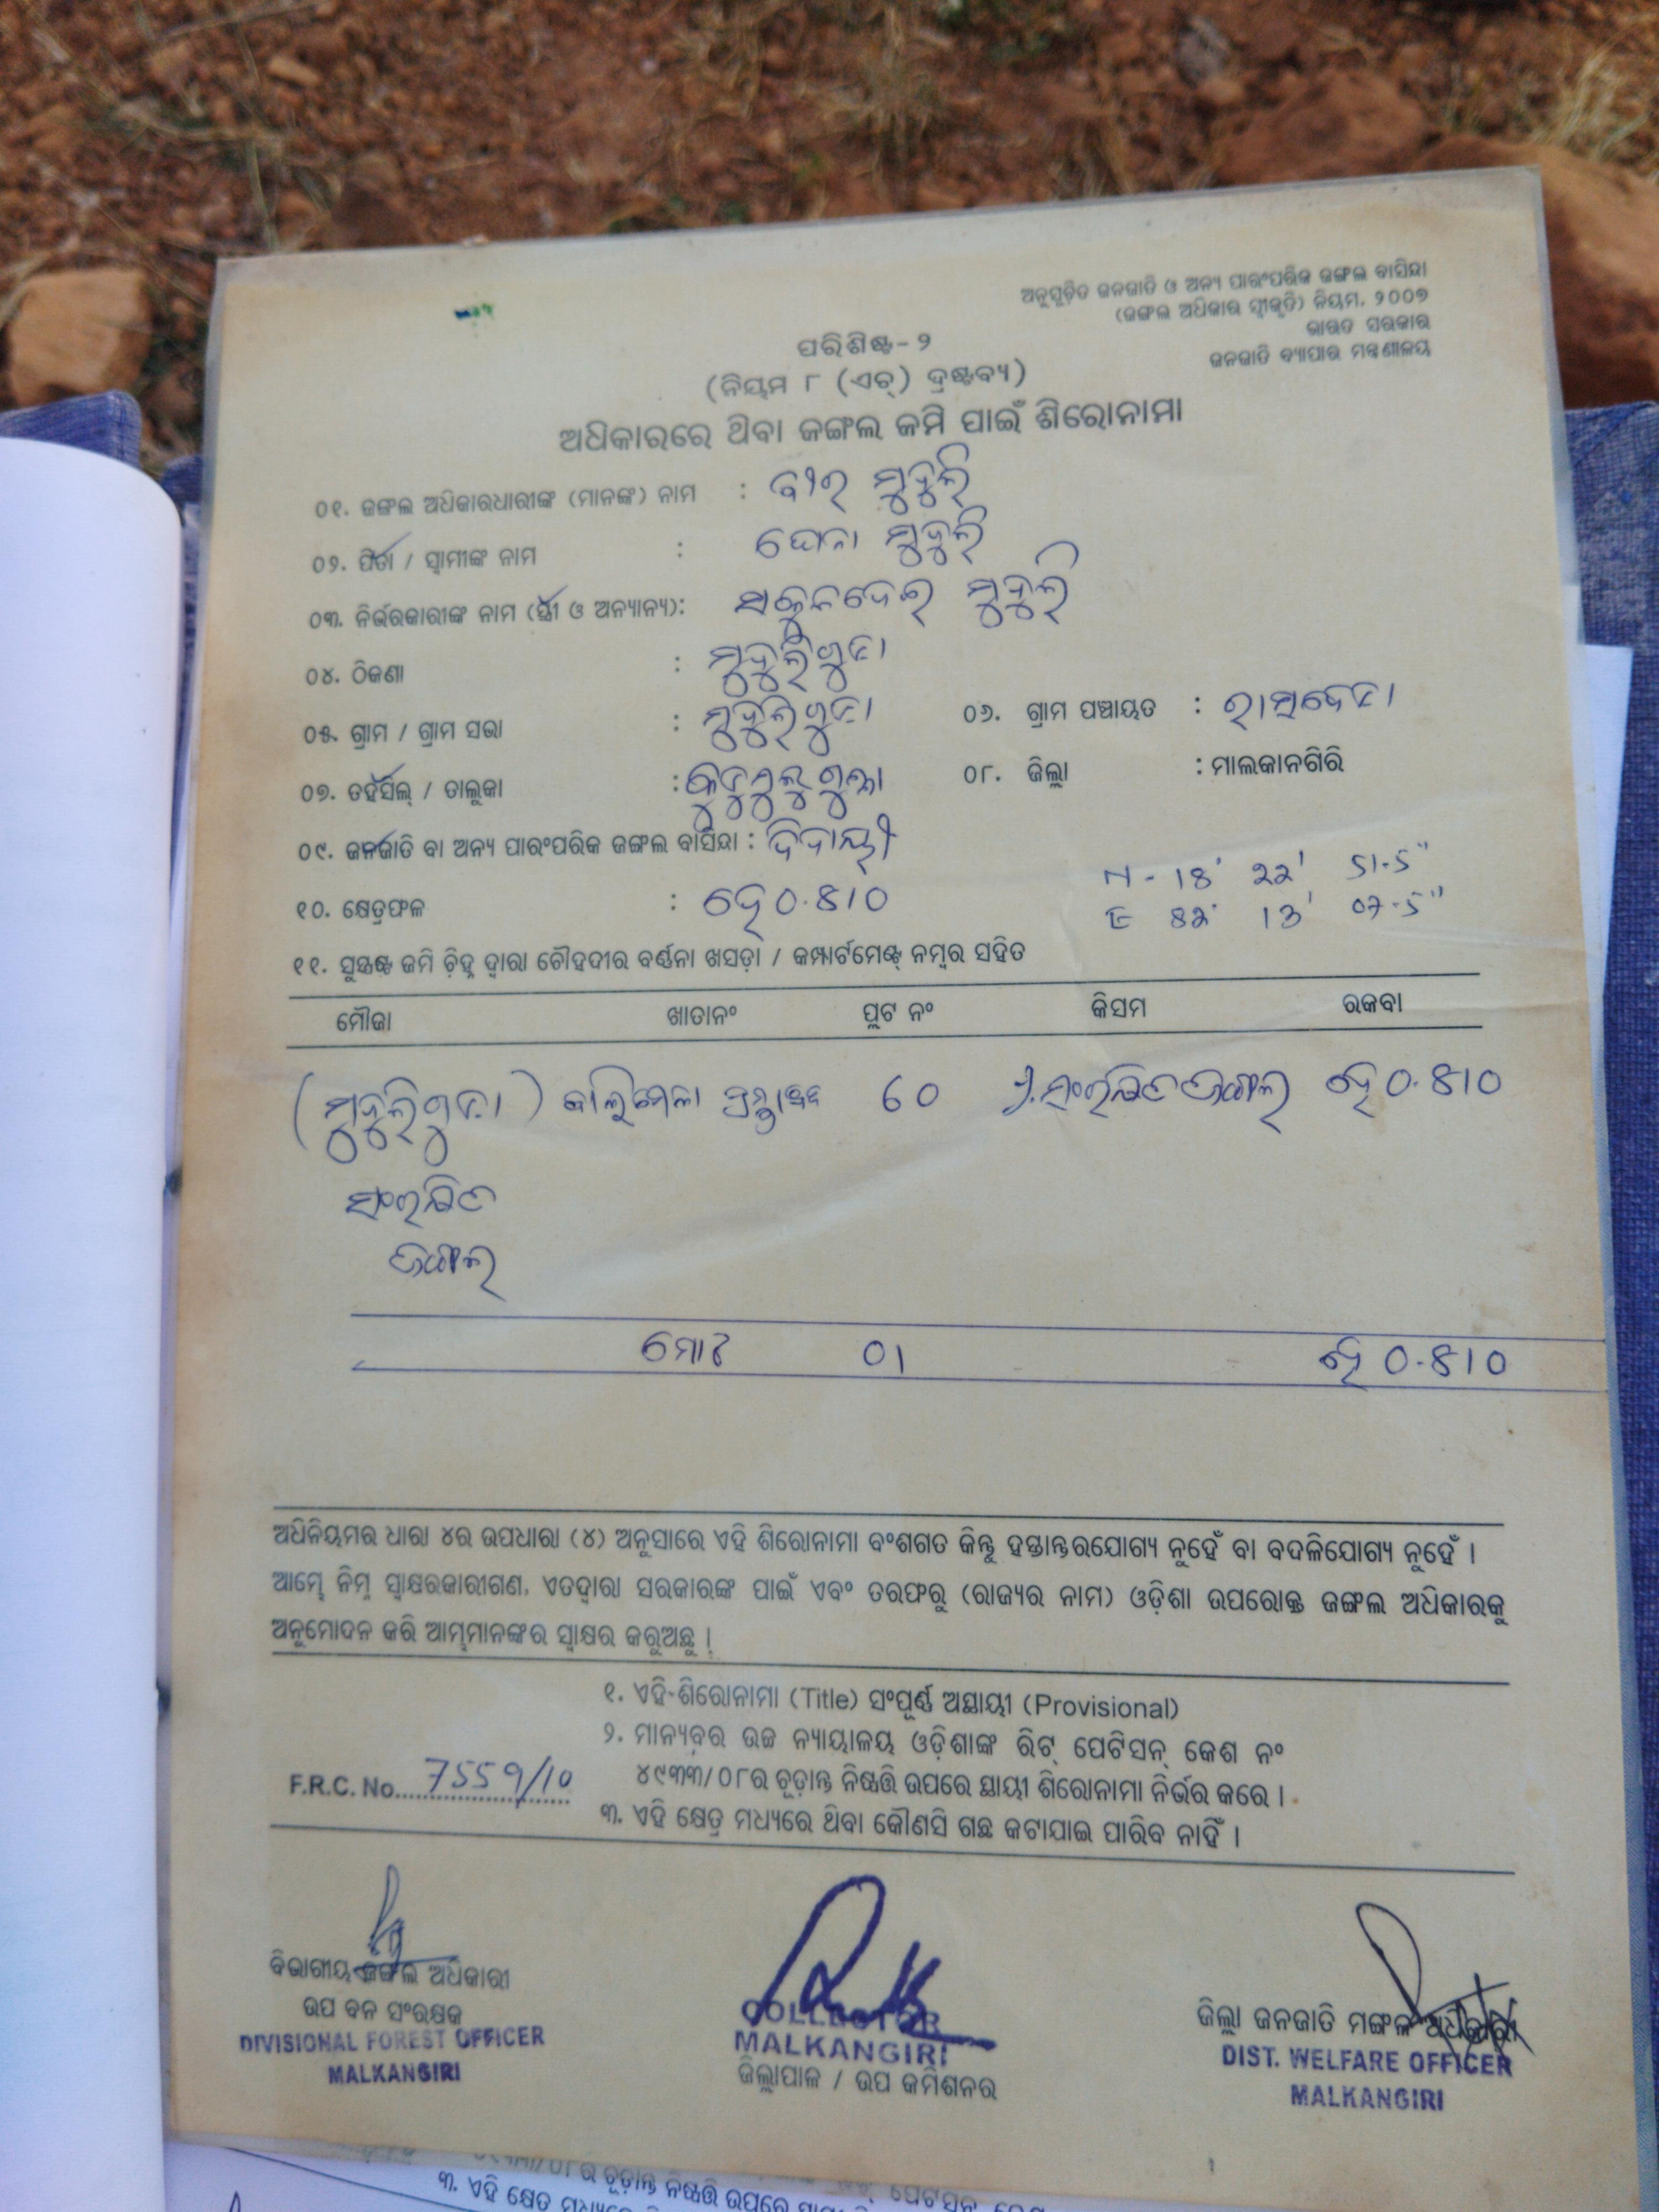 ଅନୁସୂଚିତ ଜନଜାତି ଓ ଅନ୍ୟ ପାରଂପରିକ ଜଙ୍ଗଲ ବାସିନ୍ଦା
(ଜଙ୍ଗଲ ଅଧିକାର ସ୍ୱୀକୃତି) ନିୟମ, ୨୦୦୭
ଭାରତ ସରକାର
ଜନଜାତି ବ୍ୟାପାର ମନ୍ତ୍ରଣାଳୟ
ପରିଶିଷ୍ଟ-୨
(ନିୟମ ୮ (ଏଚ୍) ଦ୍ରଷ୍ଟବ୍ୟ)
ଅଧିକାରରେ ଥିବା ଜଙ୍ଗଲ ଜମି ପାଇଁ ଶିରୋନାମା
୦୧. ଜଙ୍ଗଲ ଅଧିକାରଧାରୀଙ୍କ (ମାନଙ୍କ) ନାମ : ମୁଦୁଲି
୦୨. ପିତା / ସ୍ୱାମୀଙ୍କ ନାମ : ମୁଦୁଲି
୦୩. ନିର୍ଭରକାରୀଙ୍କ ନାମ (ସ୍ତ୍ରୀ ଓ ଅନ୍ୟାନ୍ୟ): ମୁଦୁଲି
୦୪. ଠିକଣା : ମୁଦୁଲିଗୁଡା
୦୫. ଗ୍ରାମ / ଗ୍ରାମ ସଭା : ମୁଦୁଲିଗୁଡା ୦୬. ଗ୍ରାମ ପଞ୍ଚାୟତ :
୦୭. ତହସିଲ୍ / ତାଲୁକା : କୁଡୁମୁଲୁଗୁମ୍ମା ୦୮. ଜିଲ୍ଲା : ମାଲକାନଗିରି
୦୯. ଜନଜାତି ବା ଅନ୍ୟ ପାରଂପରିକ ଜଙ୍ଗଲ ବାସିନ୍ଦା : ଦିଦାୟୀ
୧୦. କ୍ଷେତ୍ରଫଳ : ହେ 0.810 N - 18° 22' 51.5"
E 82° 13' 07.5"
୧୧. ସୁସ୍ପଷ୍ଟ ଜମି ଚିହ୍ନ ଦ୍ୱାରା ଚୌହଦୀର ବର୍ଣ୍ଣନା ଖସଡ଼ା / କମ୍ପାର୍ଟମେଣ୍ଟ୍ ନମ୍ବର ସହିତ
ମୌଜା ଖାତାନଂ ପ୍ଲଟ ନଂ କିସମ ରକବା
(ମୁଦୁଲିଗୁଡା) ବାଲିମେଳା 60 ସଂରକ୍ଷିତ ଜଙ୍ଗଲ ହେ 0.810
ସଂରକ୍ଷିତ
ଜଙ୍ଗଲ
ମୋଟ 01 ହେ 0.810
ଅଧିନିୟମର ଧାରା ୪ର ଉପଧାରା (୪) ଅନୁସାରେ ଏହି ଶିରୋନାମା ବଂଶଗତ କିନ୍ତୁ ହସ୍ତାନ୍ତରଯୋଗ୍ୟ ନୁହେଁ ବା ବଦଳିଯୋଗ୍ୟ ନୁହେଁ ।
ଆମ୍ଭେ ନିମ୍ନ ସ୍ୱାକ୍ଷରକାରୀଗଣ, ଏତଦ୍ୱାରା ସରକାରଙ୍କ ପାଇଁ ଏବଂ ତରଫରୁ (ରାଜ୍ୟର ନାମ) ଓଡ଼ିଶା ଉପରୋକ୍ତ ଜଙ୍ଗଲ ଅଧିକାରକୁ
ଅନୁମୋଦନ କରି ଆମ୍ଭମାନଙ୍କର ସ୍ୱାକ୍ଷର କରୁଅଛୁ ।
୧. ଏହି ଶିରୋନାମା (Title) ସଂପୂର୍ଣ୍ଣ ଅସ୍ଥାୟୀ (Provisional)
୨. ମାନ୍ୟବର ଉଚ୍ଚ ନ୍ୟାୟାଳୟ ଓଡ଼ିଶାଙ୍କ ରିଟ୍ ପେଟିସନ୍ କେଶ ନଂ
୪୯୩୩/୦୮ର ଚୂଡ଼ାନ୍ତ ନିଷ୍ପତ୍ତି ଉପରେ ସ୍ଥାୟୀ ଶିରୋନାମା ନିର୍ଭର କରେ ।
F.R.C. No. 7559/10
୩. ଏହି କ୍ଷେତ୍ର ମଧ୍ୟରେ ଥିବା କୌଣସି ଗଛ କଟାଯାଇ ପାରିବ ନାହିଁ ।
ବିଭାଗୀୟ ଜଙ୍ଗଲ ଅଧିକାରୀ
ଉପ ବନ ସଂରକ୍ଷକ
DIVISIONAL FOREST OFFICER
MALKANGIRI
COLLECTOR
MALKANGIRI
ଜିଲ୍ଲାପାଳ / ଉପ କମିଶନର
ଜିଲ୍ଲା ଜନଜାତି ମଙ୍ଗଳ ଅଧିକାରୀ
DIST. WELFARE OFFICER
MALKANGIRI